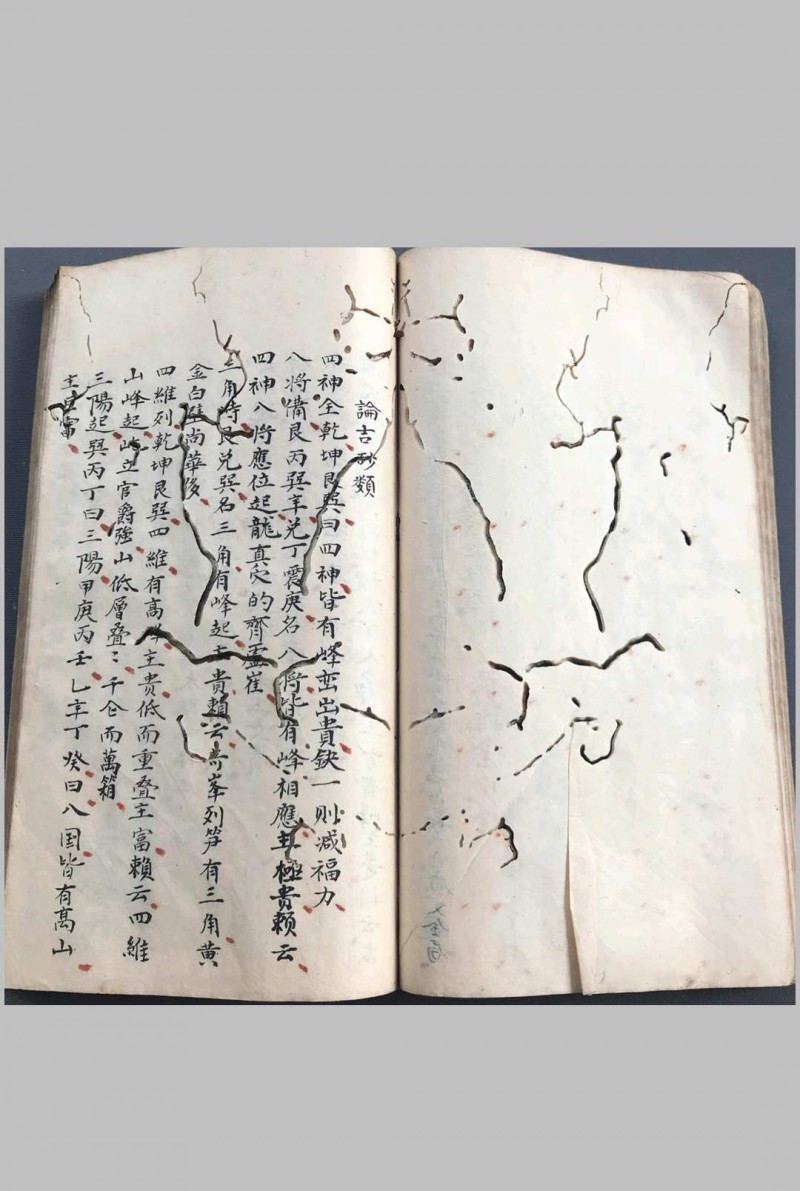 論吉砂類
四神全乾坤艮巽曰四神皆有峰巒出貴缺一則減福力
八將備艮丙巽辛兌丁震庚名八將皆有峰相應主極貴賴云
四神八將應位起龍真穴的齊靈崔
三角特艮兌巽名三角有峰起主貴賴云奇峯列笋有三角黃
金白璧尚華侈
四維列乾坤艮巽四維有高峰主貴低而重叠主富賴云四維
山峰起峙立官爵強山低層叠〻千仓而萬箱
三陽起巽丙丁曰三陽甲庚丙壬乙辛丁癸曰八国皆有高山
主巨富